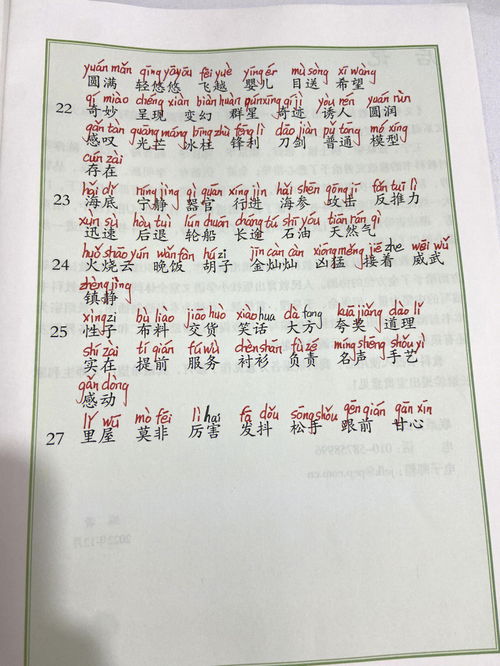 yuán mǎn qīng yōu yōu fēi yuè yīng ér mù sòng xī wàng
圆满 轻悠悠 飞越 婴儿 目送 希望
qí miào chéng xiàn biàn huàn qún xīng qí jì yòu rén yuán rùn
22 奇妙 呈现 变幻 群星 奇迹 诱人 圆润
gǎn tàn guāng máng bīng zhù fēng lì dāo jiàn pǔ tōng mó xíng
感叹 光芒 冰柱 锋利 刀剑 普通 模型
cún zài
存在
hǎi dǐ níng jìng qì guān xíng jìn hǎi shēn gōng jī fǎn tuī lì
23 海底 宁静 器官 行进 海参 攻击 反推力
xùn sù hòu tuì lún chuán cháng tú shí yóu tiān rán qì
迅速 后退 轮船 长途 石油 天然气
huǒ shāo yún wǎn fàn hú zi jīn càn càn xiōng měng jiē zhe wēi wǔ
24 火烧云 晚饭 胡子 金灿灿 凶猛 接着 威武
zhèn jìng
镇静
xìng zi bù liào jiāo huò xiào hua dà fang kuā jiǎng dào lǐ
25 性子 布料 交货 笑话 大方 夸奖 道理
shí zài tí qián fú wù chèn shān fù zé míng shēng shǒu yì
实在 提前 服务 衬衫 负责 名声 手艺
gǎn dòng
感动
lǐ wū mò fēi lì hai fā dǒu sōng shǒu gēn qián gān xīn
27 里屋 莫非 厉害 发抖 松手 跟前 甘心